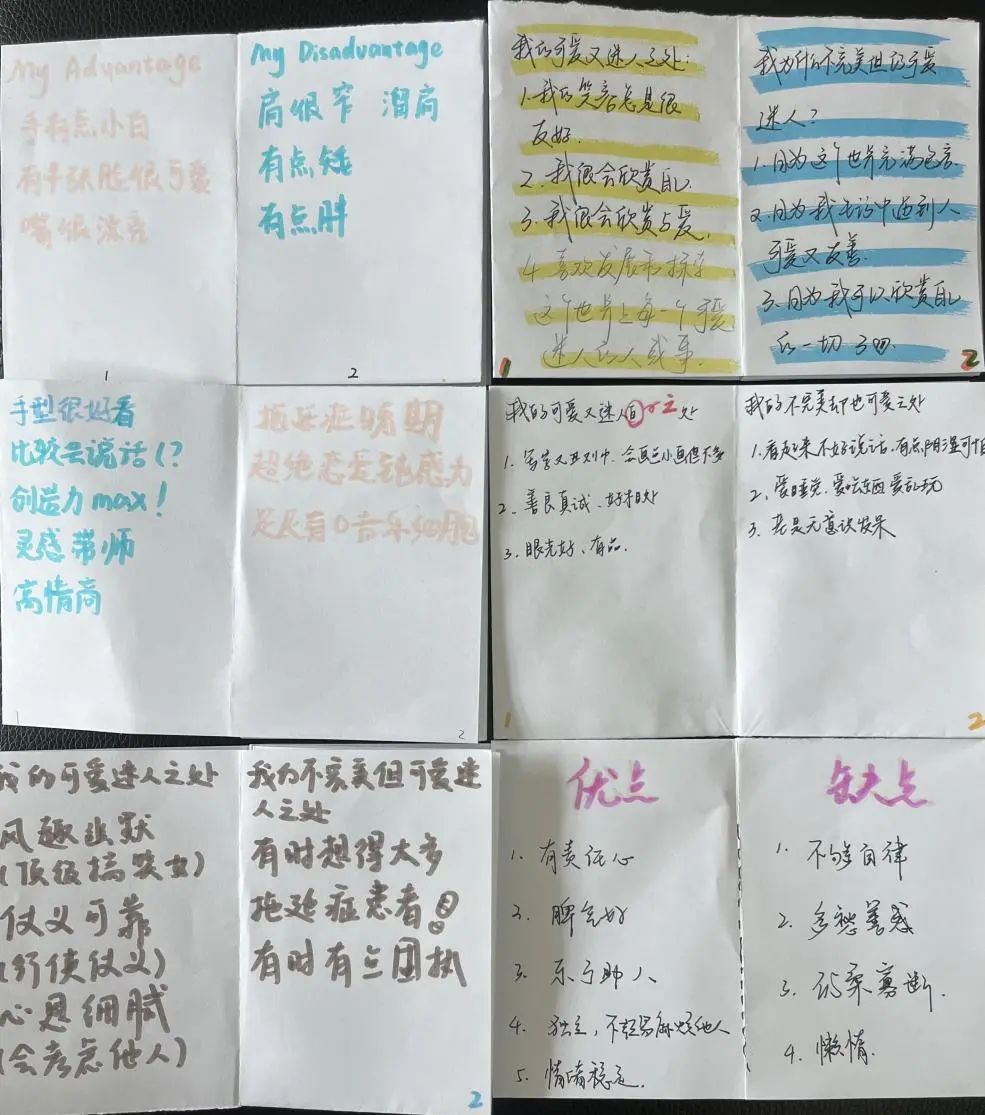 My Advantage
手有点小白
有个张脸很可爱
嘴很漂亮
1
My Disadvantage
肩很窄 溜肩
有点矮
有点胖
2
我的可爱又迷人之处:
1.我的笑容总是很
友好.
2.我很会欣赏自己.
3.我很会欣赏与爱.
4.喜欢发展和探索
这个世界上每一个可爱
迷人的人或事.
1
我为什么不完美但的可爱
迷人?
1.因为这个世界充满包容.
2.因为我生活中遇到人
可爱又友善.
3.因为我可以欣赏自己
的一切
2
手型很好看
比较会说话(?
创造力max!
灵感带师
高情商
1
拖延症晚期
超绝恋爱钝感力
是从有0音乐细胞
2
我的可爱又迷人自之处
1.
2.善良真诚、好相处
3.眼光好、有品.
1
我的不完美却也可爱之处
1.看起来不好说话,有点阴湿可怕
2.爱睡觉.爱吃东西 爱乱玩
3.老是无意识发呆
2
我的可爱迷人之处
风趣幽默
(顶级搞笑女)
仗义可靠
(行侠仗义)
心思细腻
(会考虑他人)
我为不完美但可爱迷
人之处
有时想得太多
拖延症患者
有时有点固执
2
优点
1. 有责任心
2. 脾气好
3. 乐于助人
4. 独立,不轻易麻烦他人
5. 情绪稳定.
缺点
1. 不够自律
2. 多愁善感
3. 优柔寡断.
4. 懒惰.